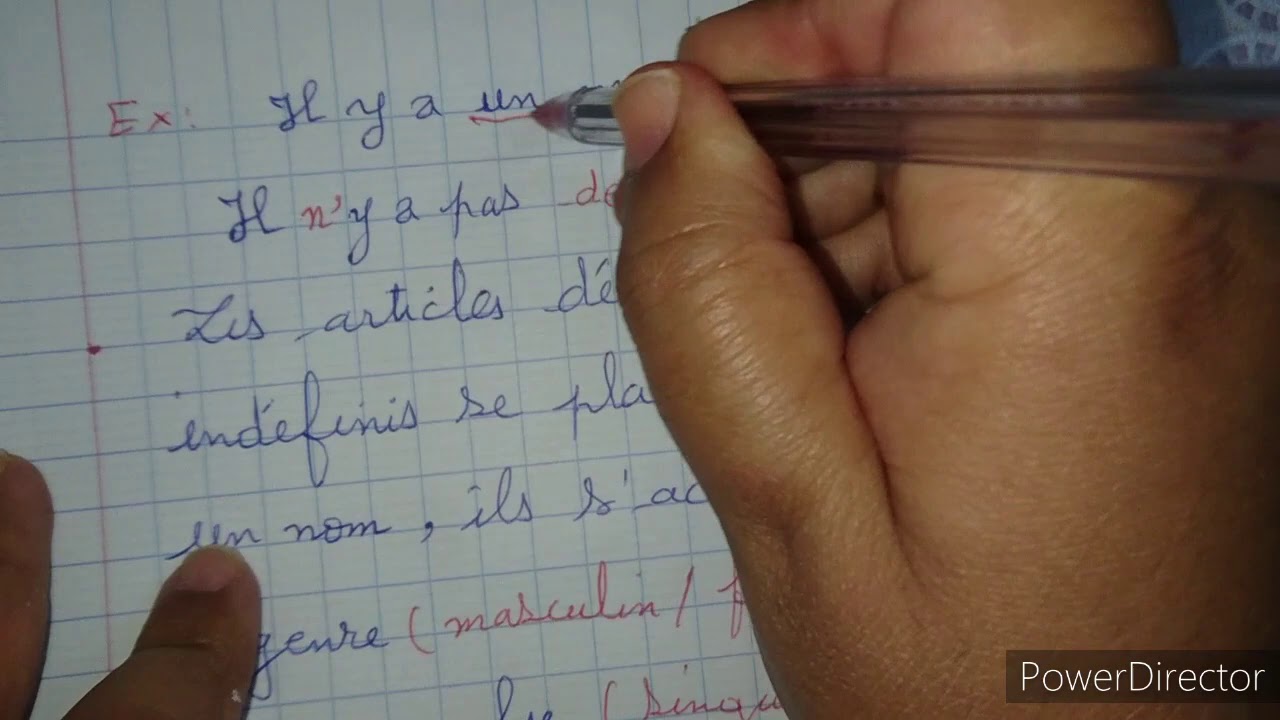 Ex: Il y a un
Il n'y a pas de
Les articles dé
indéfinis se pla
un nom, ils s'ac
genre (masculin / f
(singu
PowerDirector